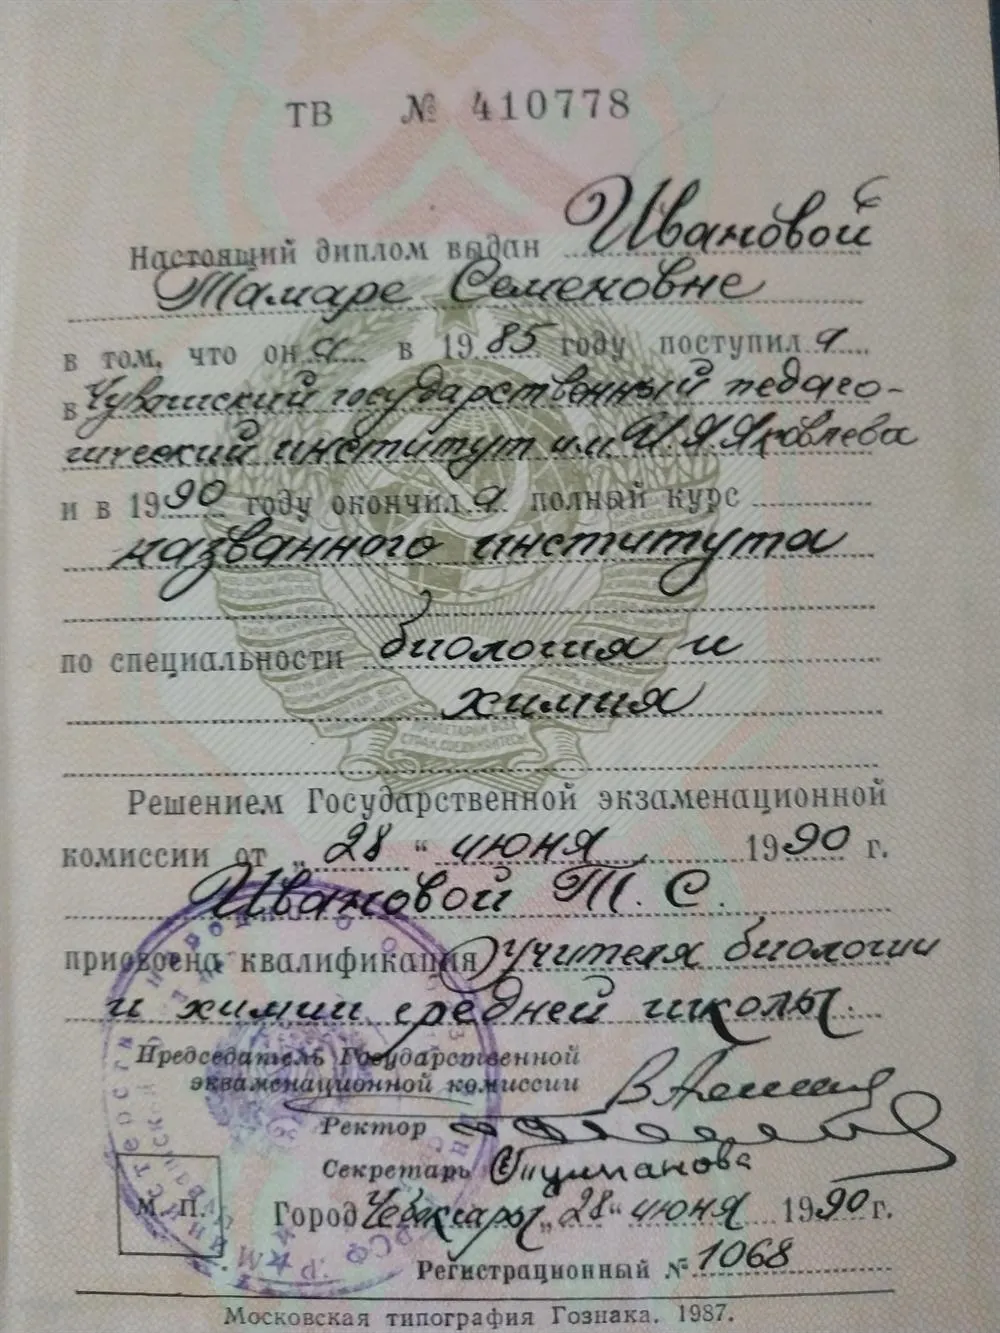 ТВ № 410778
Настоящий диплом выдан Ивановой
Тамаре Семеновне
в том, что она в 1985 году поступила
в Чувашский государственный педаго-
гический институт им. И.Я.Яковлева
и в 1990 году окончила полный курс
названного института
по специальности биология и
химия
Решением Государственной экзаменационной
комиссии от „28“ июня 1990 г.
Ивановой Т. С.
присвоена квалификация учителя биологии
и химии средней школы.
Председатель Государственной
экзаменационной комиссии
Ректор
Секретарь
М. П.
Город Чебоксары „28“ июня 1990 г.
Регистрационный № 1068
Московская типография Гознака. 1987.